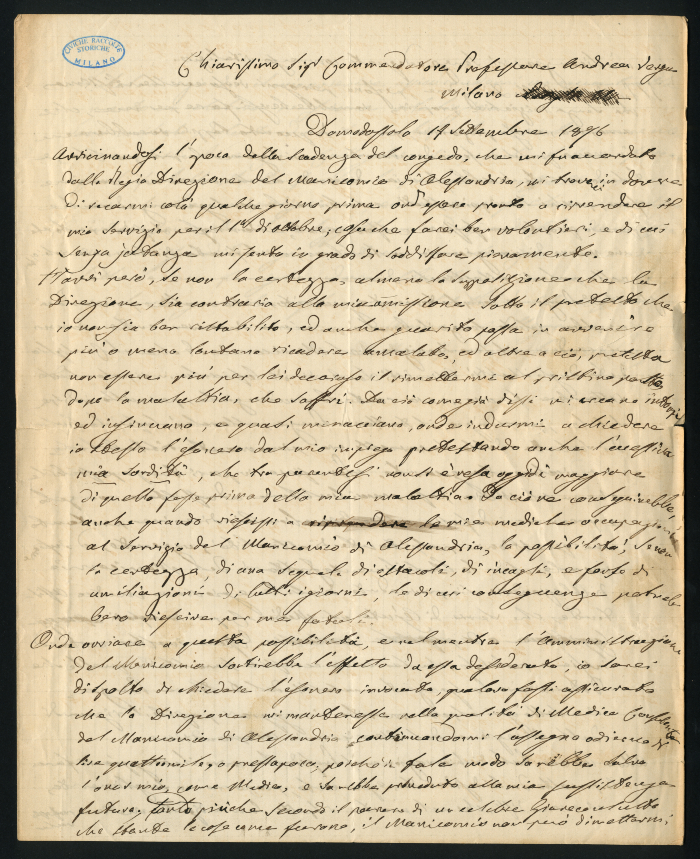 CIVICHE RACCOLTE
STORICHE
MILANO
Chiarissimo Sigr Commendatore Professore Andrea Verga
Milano
Domodossola 14 Settembre 1876
Avvicinandosi l'epoca della scadenza del congedo, che mi fu accordato
dalla Regia Direzione del Manicomio di Alessandria, mi trovo in dovere
di recarmi colà qualche giorno prima ond'essere pronto a riprendere il
mio servizio per il 1mo di ottobre; cosa che farei ben volontieri, e di cui
senza jattanza mi sento in grado di soddisfare pienamente.
Havvi però, se non la certezza, almeno la supposizione che la
Direzione, sia contraria alla mia Sotto il pretesto che
io non sia ben ristabilito, ed anche guarito possa in avvenire
più o meno lontano ricadere amalato, ed oltre a ciò,
non essere più per lei decoroso il rimettermi al pristino posto,
dopo la malattia, che soffri. Da ciò come già dissi mi
ed insinuano, e quasi minacciano, onde indurmi a chiedere
io stesso l'esonero dal mio impiego pretestando anche l'eccessiva
mia sordità, che tra parentesi non si è resa oggidì maggiore
di quello fosse prima della mia malattia. Da ciò ne conseguirebbe,
anche quando riescissi a riprendere le mie mediche occupazioni
al servizio del Manicomio di Alessandria, la possibilità, se non
la certezza, di una sequela di ostacoli, di incagli, e forse di
umiliazioni di tutti i giorni, le di cui conseguenze potreb-
bero riescire per me fatali.
Onde ovviare a questa possibilità, e nel mentre l'Amministrazione
del Manicomio sortirebbe l'effetto da essa desiderato, io sarei
disposto di chiedere l'esonero invocato, qualora fossi assicurato
che la Direzione mi mantenesse nella qualità di Medico Consulente
del Manicomio di Alessandria continuandomi l'assegno odierno di
lire quattromila, o pressapoco, poichè in tale modo sarebbe salvo
l'onor mio, come Medico, e sarebbe provveduto alla mia sussistenza
futura, tanto più che secondo il parere di un celebre Giureconsulto
che stante le cose come furono, il Manicomio non può dimettermi,